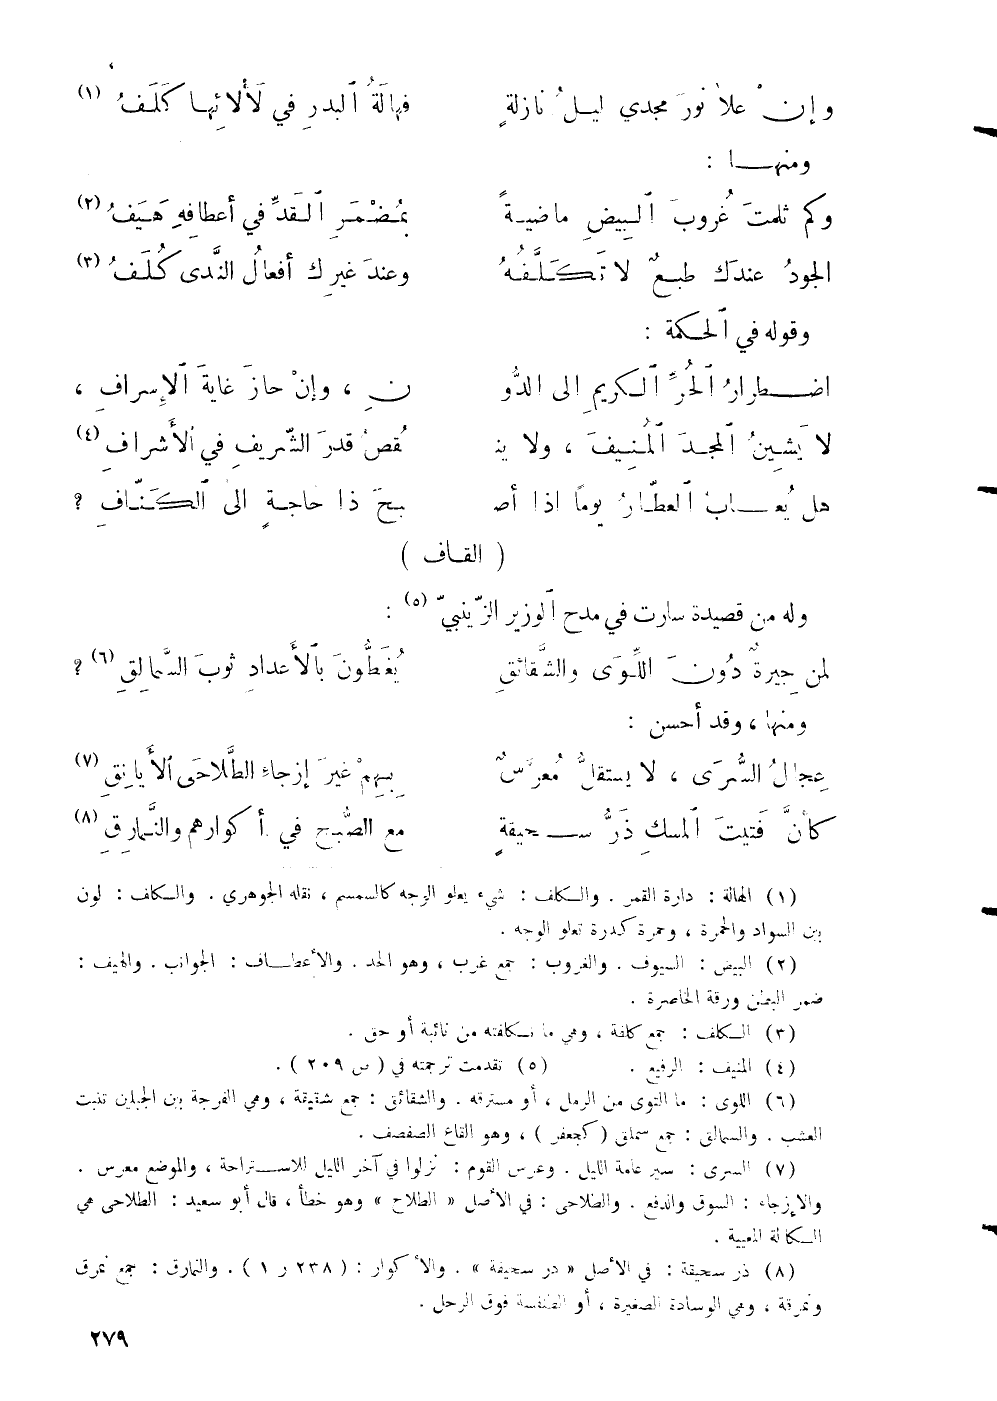 وإنْ علا نورَ مجدي ليلُ نازلةٍ فهالَةُ ٱلبدرِ في لَأْلائِها كَلَفُ (١)
ومنهـا :
وكم ثلمتَ غُروبَ ٱلبيضِ ماضيةً بمُضْمَرِ ٱلقدِّ في أعطافِهِ هَيَفُ (٢)
الجودُ عندَك طبعٌ لا تَكَلَّفُهُ وعندَ غيرِك أفعالُ النَّدى كُلَفُ (٣)
وقوله في ٱلحكمة :
اضطرارُ ٱلحُرِّ ٱلكريمِ الى الدُّو نِ ، وإنْ حازَ غايةَ ٱلإسرافِ ،
لا يَشينُ ٱلمجدَ ٱلمُنيفَ ، ولا ينـ ـقُصُ قدرَ الشّريفِ في ٱلأَشرافِ (٤)
هل يُعـابُ ٱلعطّارُ يومًا اذا أصـ ـبحَ ذا حاجةٍ الى ٱلكَنّافِ ؟
( القاف )
وله من قصيدة سارت في مدح ٱلوزير الزّينبيّ (٥) :
لمن جِيرةٌ دُونَ اللِّوَى والشَّقائقِ يُغَطُّونَ بٱلأَعدادِ ثوبَ السَّمالِقِ (٦) ؟
ومنها ، وقد أحسن :
عِجالُ السُّرَى ، لا يستقلُّ مُعرَّسٌ بهِمْ غيرَ إزجاءِ الطَّلاحَى ٱلأَيانِقِ (٧)
كأنَّ فَتيتَ ٱلمسكِ ذَرُّ سـحيقةٍ مع الصُّبح في أكوارهم والنَّمارِقِ (٨)
(١) الهالة : دارة القمر . والكلف : شيء يعلو الوجه كالسمسم ، نقله الجوهري . والكلف : لون
بين السواد والحمرة ، وحمرة كدرة تعلو الوجه .
(٢) البيض : السيوف . والغروب : جمع غرب ، وهو الحد . والأعطاف : الجوانب . والهيف :
ضمر البطن ورقة الخاصرة .
(٣) الكلف : جمع كلفة ، وهي ما تكلفته من نائبة أو حق .
(٤) المنيف : الرفيع . (٥) تقدمت ترجمته في ( ص ٢٠٩ ) .
(٦) اللوى : ما التوى من الرمل ، أو مسترقه . والشقائق : جمع شقيقة ، وهي الفرجة بين الجبلين تنبت
العشب . والسمالق : جمع سملق ( كجعفر ) ، وهو القاع الصفصف .
(٧) السرى : سير عامة الليل . وعرس القوم : نزلوا في آخر الليل للاستراحة ، والموضع معرس .
والإزجاء : السوق والدفع . والطلاحى : في الأصل « الطلاح » وهو خطأ ، قال أبو سعيد : الطلاحى هي
الكالة المعيية .
(٨) ذر سحيقة : في الأصل « در سحيفة » . والأكوار : ( ٢٣٨ ر ١ ) . والنمارق : جمع نمرق
ونمرقة ، وهي الوسادة الصغيرة ، أو الطنفسة فوق الرحل .
٢٧٩